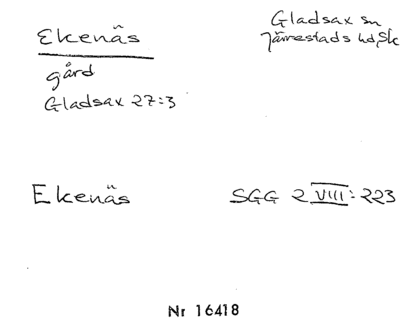 Ekenäs
Gladsax sn
Järrestads hd, Sk
gård
Gladsax 27:3
Ekenäs
SGG 2 VIII: 223
Nr 16418